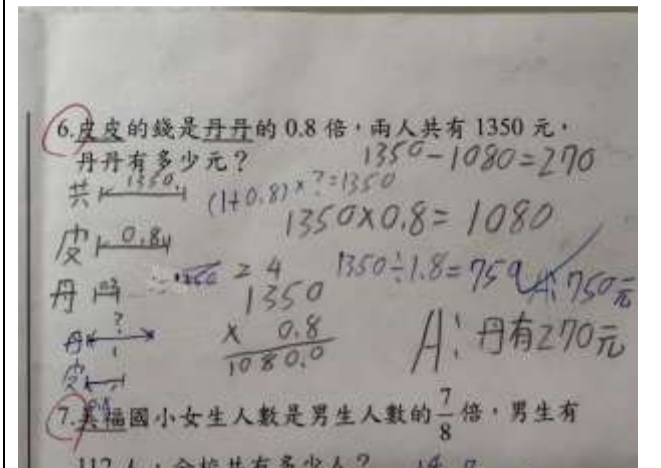 6.皮皮的錢是丹丹的 0.8 倍，兩人共有 1350 元，
丹丹有多少元？
1350-1080=270
共 1350
(1+0.8)×?=1350
1350×0.8=1080
皮 0.8
丹
= 4
1350÷1.8=750
A:750元
1350
× 0.8
1080.0
丹 ?
1
皮
A:丹有270元
7.美福國小女生人數是男生人數的 7/8 倍，男生有
112 人，全校共有多少人？